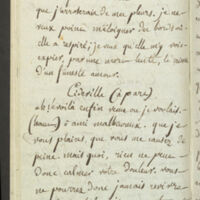 que j'arroserai de mes pleurs. je ne
veux point m'éloigner des bords où
elle a respiré; je veux qu'elle m'y voie
expier, par une mort lente, le crime
d'un funeste amour.
Cirville (à part)
ah! le voilà enfin venu où je voulais.
(haut) ô ami malheureux. que je
vous plains, que vous me causez de
peine. mais quoi, rien ne peut
donc calmer votre douleur. vous
ne pourrez donc jamais revivre